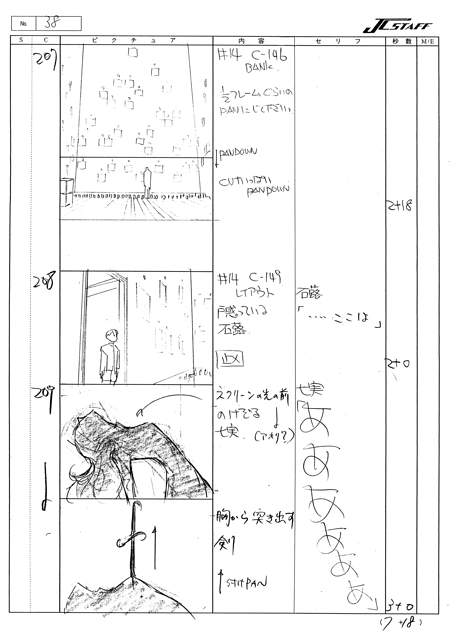 No. 38
J.C.STAFF
S
C
ピクチュア
内容
セリフ
秒数
M/E
207
#14 C-146
BANK
1/2フレームぐらいの
PANにして下さい
↓PANDOWN
CUTいっぱい
PANDOWN
2+18
208
#14 C-149
レイアウト
戸惑っている
石蕗
止メ
石蕗
「……ここは」
2+0
209
スクリーンの光の前
のけぞる
七実
(アオリ?)
七実
「あ
あ
あ
ぁ
ぁ
ぁ」
胸から突き出す
剣
↑
付けPAN
3+0
(7+18)